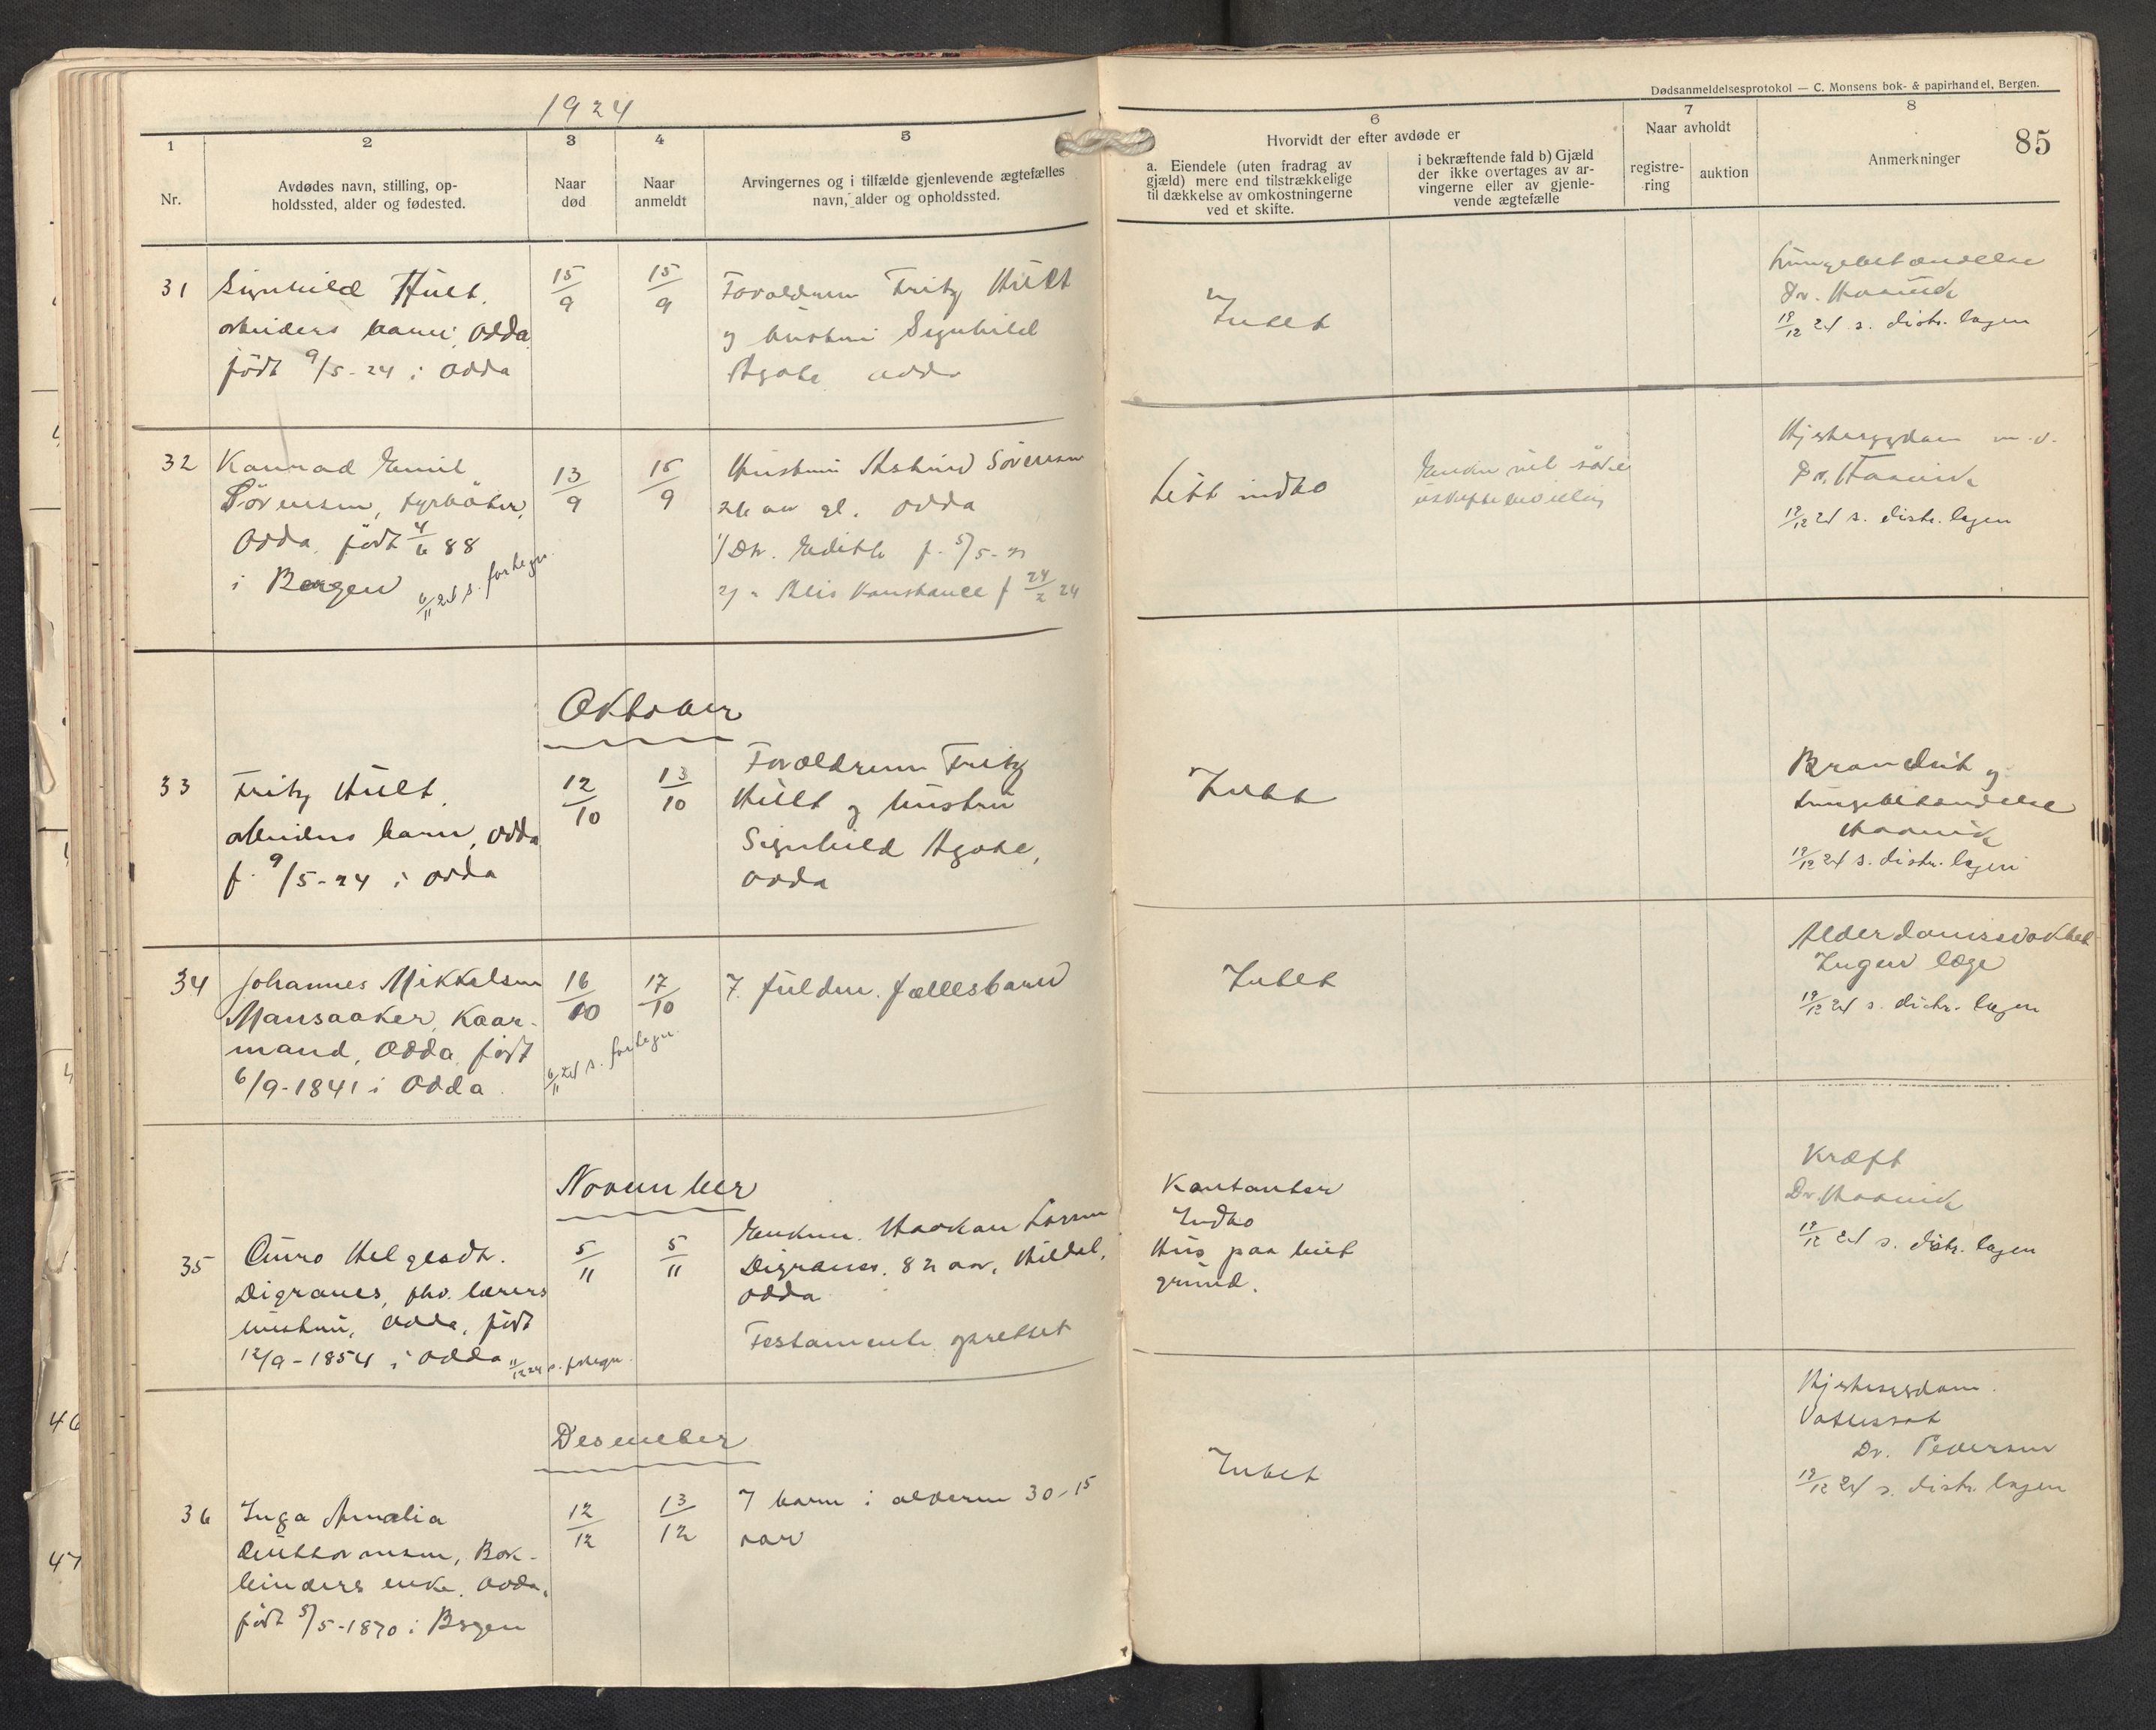 1924
Dødsanmeldelsesprotokol — C. Monsens bok- & papirhandel, Bergen.
85
1
Nr.
2
Avdødes navn, stilling, op-
holdssted, alder og fødested.
3
Naar
død
4
Naar
anmeldt
5
Arvingernes og i tilfælde gjenlevende ægtefælles
navn, alder og opholdssted.
6
Hvorvidt der efter avdøde er
a. Eiendele (uten fradrag av
gjæld) mere end tilstrækkelige
til dækkelse av omkostningerne
ved et skifte.
i bekræftende fald b) Gjæld
der ikke overtages av ar-
vingerne eller av gjenle-
vende ægtefælle
7
Naar avholdt
registre-
ring
auktion
8
Anmerkninger
31
Signhild Hult.
arbeiders barn, Odda
født 9/5-24 i Odda
15/9
15/9
Forældrene Fritz Hult
og hustru Signhild
Agate Odda
Intet
Lungebetændelse
Dr. Haanik
19/12 24 s. distr. lægen
32
Konrad Emil
Sörensen, fyrböter,
Odda, født 4/6 88
i Bergen 6/11 24 s. fortegn.
13/9
15/9
Hustru Astrid Sörensen
26 aar gl. Odda
1/ Dtr. Edith f. 5/5-21
2/ " Alis Konstance f 24/2 24
Litt indbo
Enken vil søke
uskiftebevilling
Hjertesygdom m.v.
Dr. Haanik
19/12 24 s. distr. lægen
Oktober
33
Fritz Hult.
arbeiders barn, Odda
f. 9/5-24 i Odda
12/10
13/10
Forældrene Fritz
Hult og hustru
Signhild Agate,
Odda
Intet
Brandsit og
Lungebetændelse
Haanik
19/12 24 s. distr. lægen
34
Johannes Mikkelsen
Mansaaker, Kaar-
mand, Odda, født
6/9-1841 i Odda.
6/11 24 s. fortegn.
16/10
17/10
7 fuldm. fællesbarn
Intet
Alderdomssvakhet
Ingen læge
19/12 24 s. distr. lægen
November
35
Guro Helgesdtr.
Digranes, fhv. lærers
hustru, Odda, født
12/9-1854 i Odda 11/12 24 s. fortegn.
5/11
5/11
Enkem. Haakon Larsen
Digranes, 82 aar, Hildal,
Odda
Testamente oprettet
Kontanter
Indbo
Hus paa leiet
grund.
Kræft
Dr. Haanik
19/12 24 s. distr. lægen
Desember
36
Inga Amalia
Guttormsen, Bok-
binders enke, Odda,
født 5/5-1870 i Bergen
12/12
13/12
7 barn i alderen 30-15
aar
Intet
Hjertesygdom.
Vattersot
Dr. Pedersen
19/12 24 s. distr. lægen
46
47